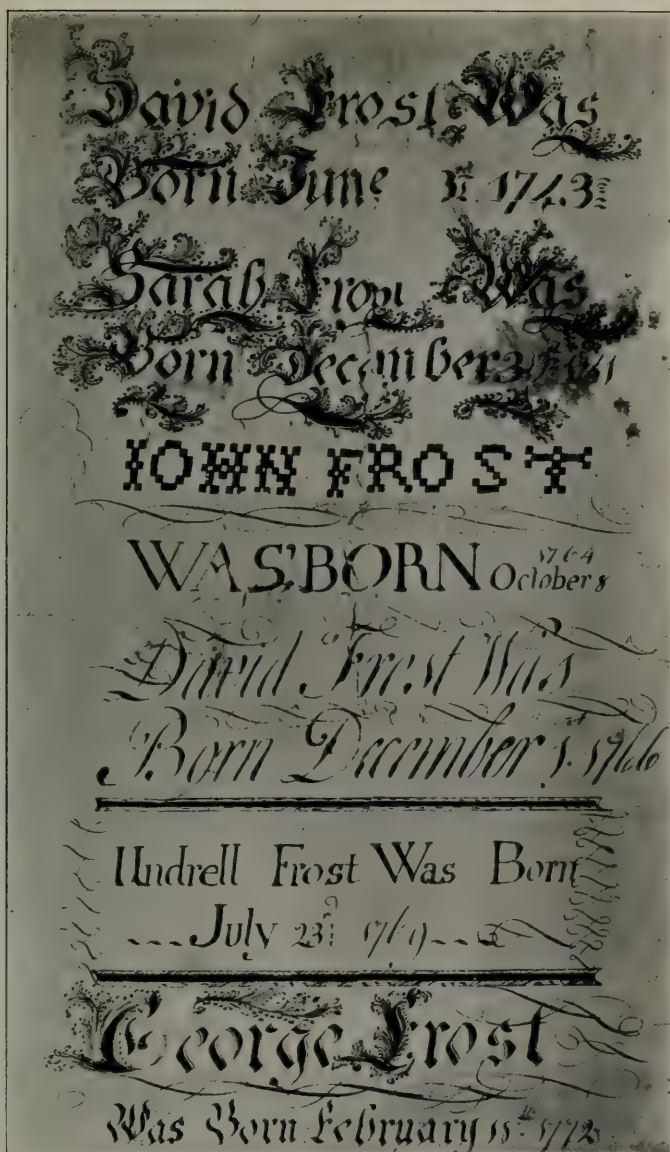 David Frost Was
Born June 3rd 1743
Sarah Frost Was
Born December
IOHN FROST
WAS BORN October 8 1764
David Frost Was
Born December 1st 1766
Undrell Frost Was Born
July 23d 1769
George Frost
Was Born February 11th 1772